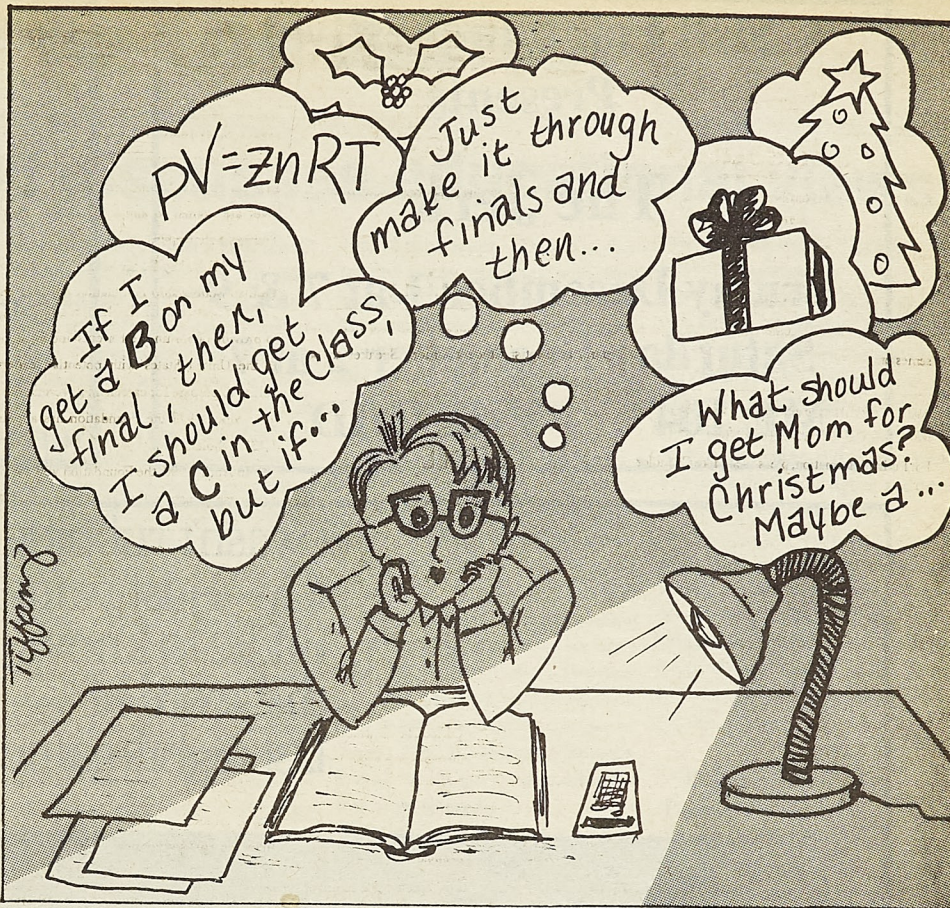 PV=ZnRT
Just
make it through
finals and
then...
If I
get a B on my
final, then,
I should get
a C in the Class,
but if...
What should
I get Mom for
Christmas?
Maybe a...
Tiffany